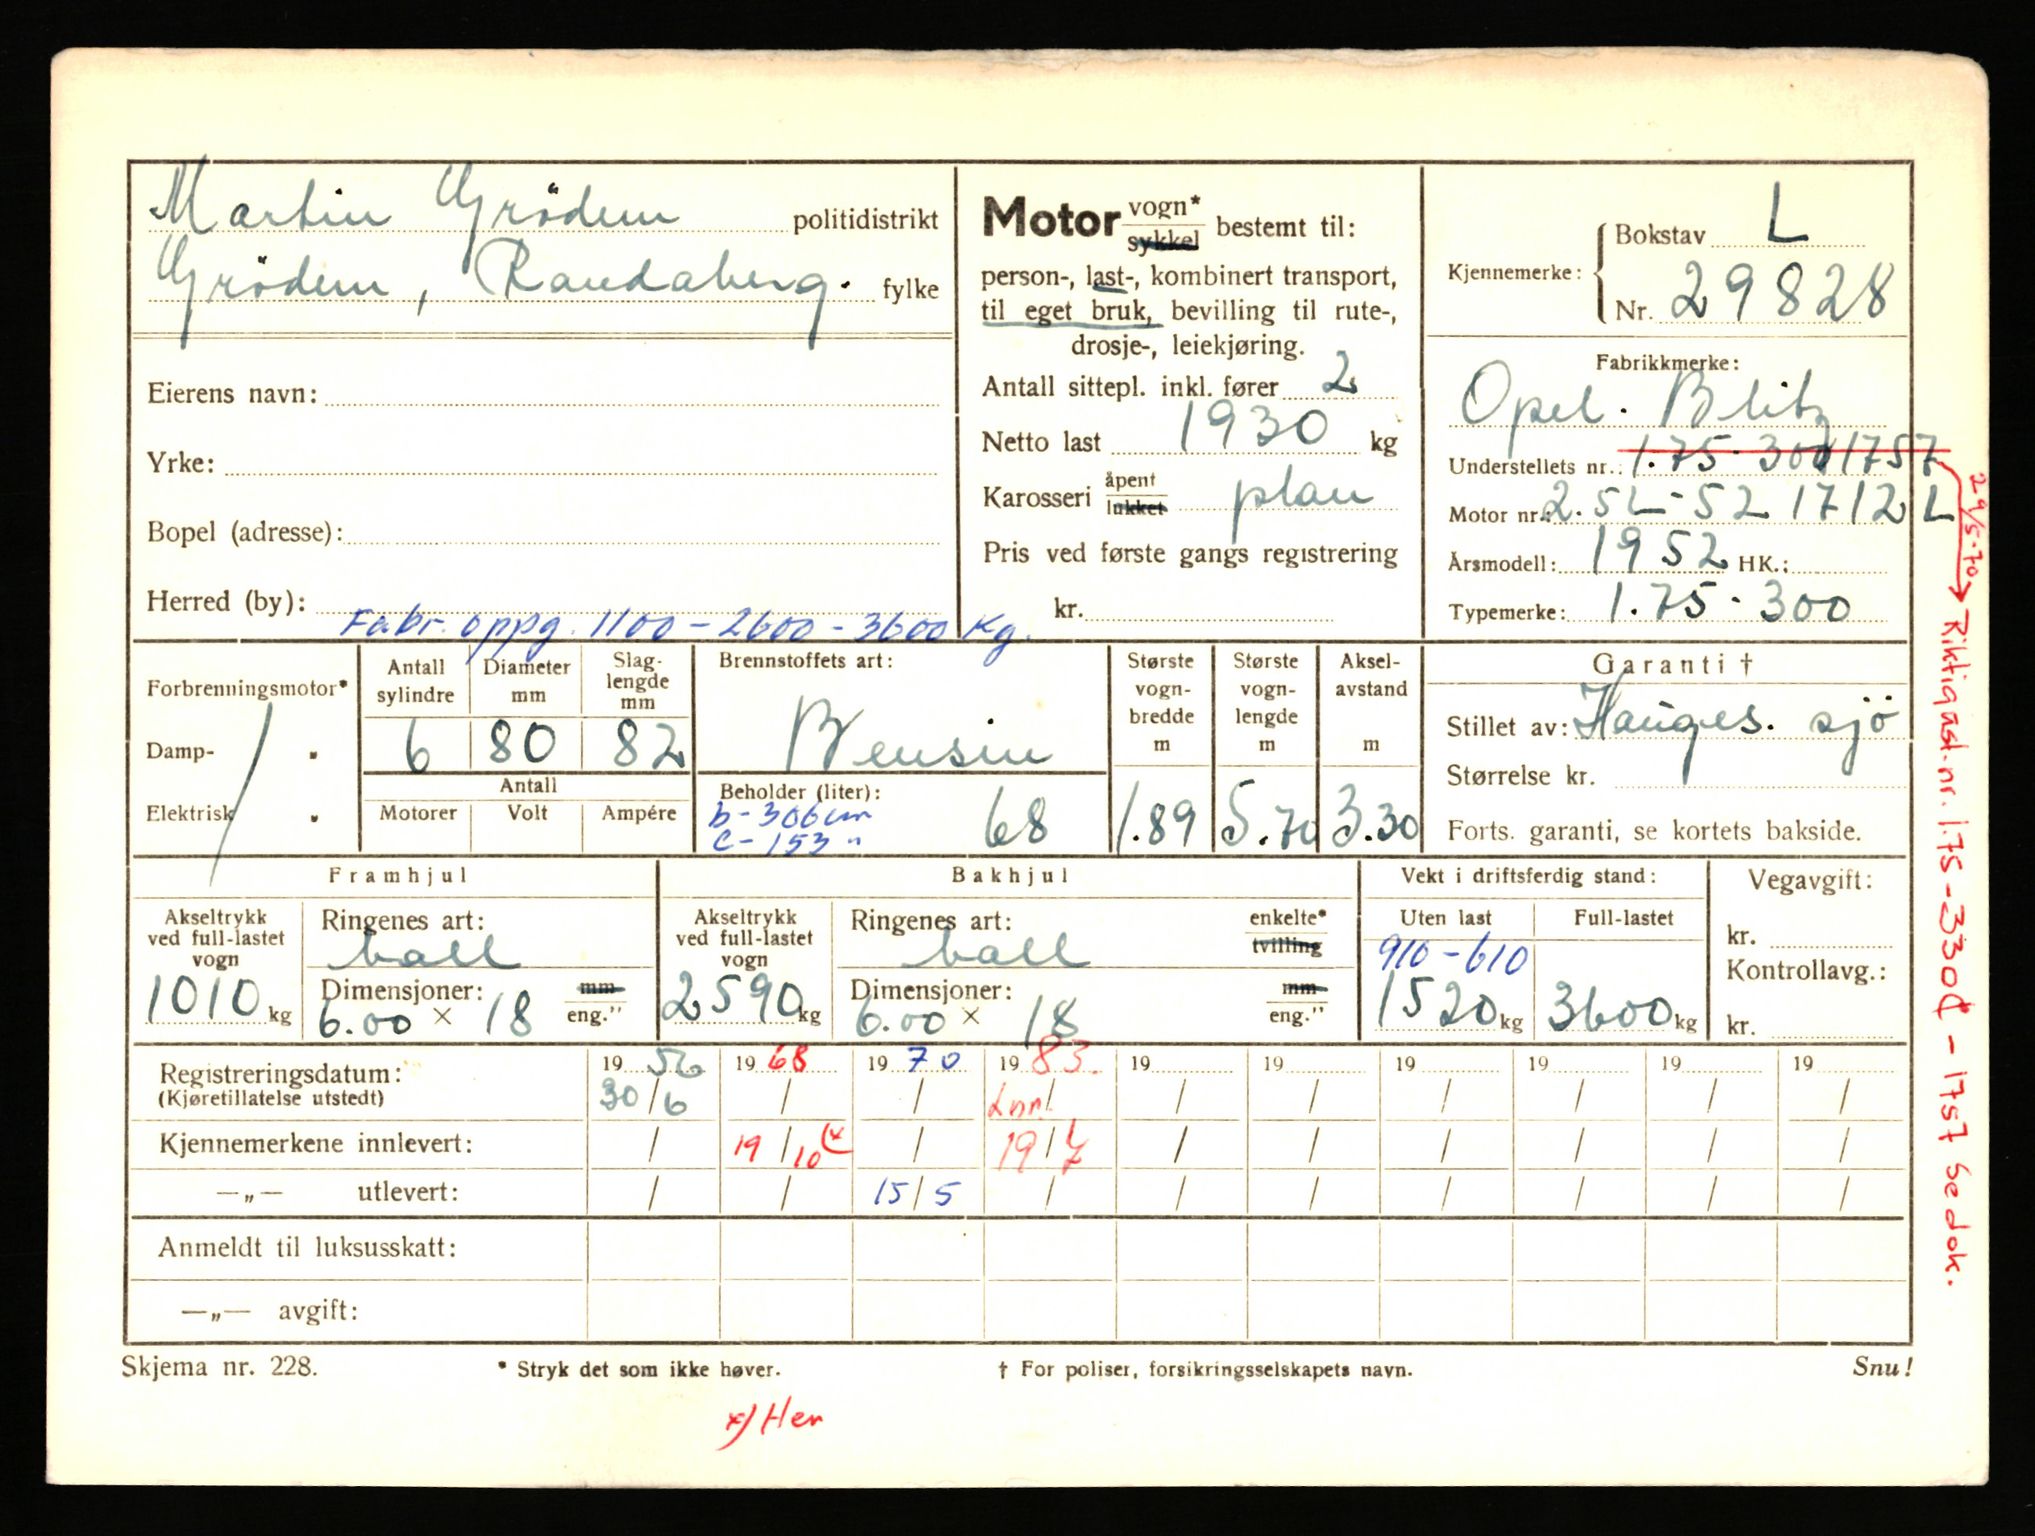 Martin Grödem politidistrikt
Grödem, Randaberg. fylke
Eierens navn:
Yrke:
Bopel (adresse):
Herred (by):
Motor vogn* sykkel bestemt til:
person-, last-, kombinert transport,
til eget bruk, bevilling til rute-,
drosje-, leiekjøring.
Antall sittepl. inkl. fører 2
Netto last 1930 kg
Karosseri åpent lukket plan
Pris ved første gangs registrering
kr.
Kjennemerke: Bokstav L
Nr. 29828
Fabrikkmerke:
Opel. Blitz
Understellets nr.: 1.75-300/1757
Motor nr.: 2.5L-52 1712 L
Årsmodell: 1952 HK.:
Typemerke: 1.75-300
29/5-70 Riktig ast. nr. 1.75-330d - 1757 Se dok.
Fabr. oppg. 1100-2600-3600 Kg.
Forbrenningsmotor*
Damp- "
Elektrisk "
Antall sylindre Diameter mm Slag-lengde mm
6 80 82
Antall
Motorer Volt Ampére
Brennstoffets art:
Bensin
Beholder (liter): 68
b-306cm
c-153 "
Største vogn-bredde m Største vogn-lengde m Aksel-avstand m
1.89 5.70 3.30
Garanti †
Stillet av: Hauges. sjö
Størrelse kr.
Forts. garanti, se kortets bakside.
Framhjul
Akseltrykk ved full-lastet vogn
1010 kg
Ringenes art:
ball
Dimensjoner: mm
6.00 × 18 eng."
Bakhjul
Akseltrykk ved full-lastet vogn
2590 kg
Ringenes art: enkelte*
ball tvilling
Dimensjoner: mm
6.00 × 18 eng."
Vekt i driftsferdig stand:
Uten last Full-lastet
910-610
1520 kg 3600 kg
Vegavgift:
kr.
Kontrollavg.:
kr.
Registreringsdatum: 19 56 19 68 19 70 19 83. 19 19 19 19 19 19
(Kjøretillatelse utstedt) 30/6 / / / / / / / / /
Kjennemerkene innlevert: / 19/10 (x / 19/7 / / / / / /
—„— utlevert: / / 15/5 / / / / / / /
Anmeldt til luksusskatt:
—„— avgift:
Skjema nr. 228. * Stryk det som ikke høver. † For poliser, forsikringsselskapets navn. Snu!
x) Hen